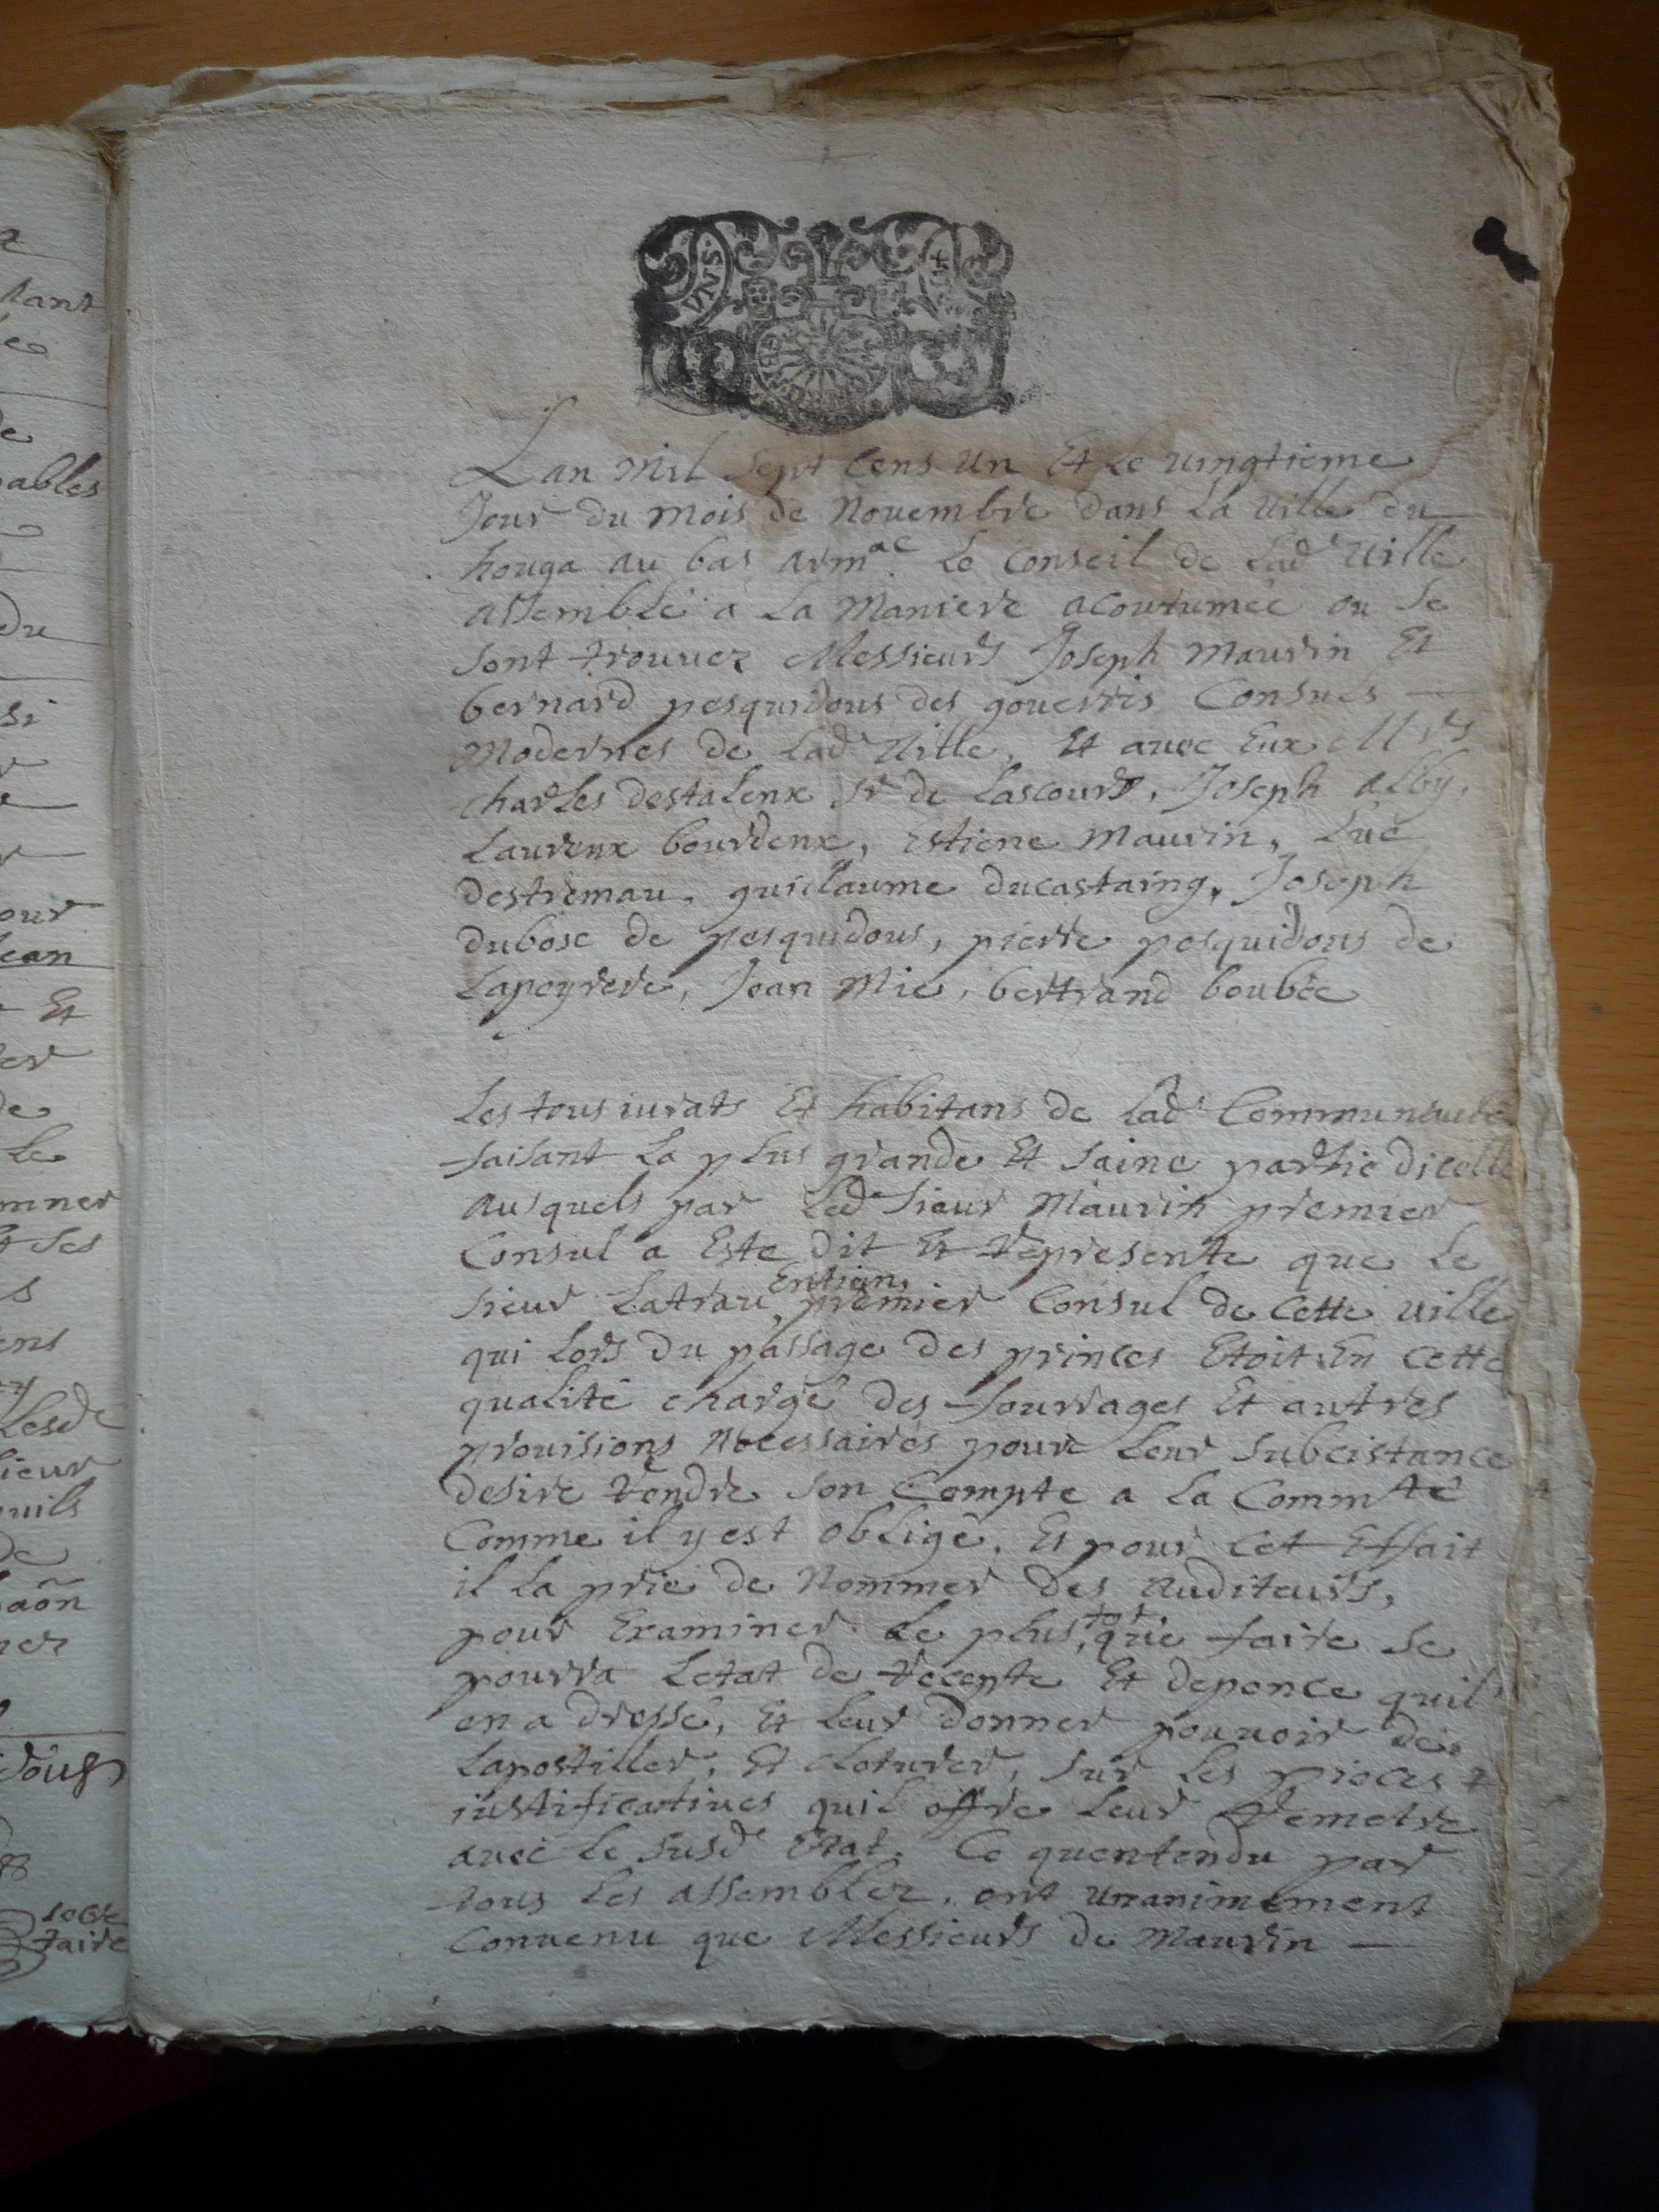 Lan mil sept cens un Et le uingtieme
Jour du mois de Nouembre dans la uille du
houga au bas armac. Le Conseil de lade uille
assemblé a la maniere acoutumée ou se
sont trouuez Messieurs Joseph maurin Et
bernard pesquidous des gouerris Consuls
modernes de lade Uille, Et auec Eux Mrs
charles destalenx sr de Lascours, Joseph alby,
Laurenx bourdenx, Estiene maurin, Luc
destremau, guillaume ducastaing, Joseph
dubosc de pesquidous, pierre pesquidous de
Lapeyrere, Jean Mie, bertrand boubée
Les tous iurats Et habitans de lade Communauté
faisant la plus grande Et saine partie dicelle
ausquels par led sieur maurin premier
Consul a Esté dit Et représenté que le
Entien,
sieur Latrau premier Consul de cette uille
qui lors du passage des princes Etoit En cette
qualité chargé des fourrages Et autres
prouisions Necessaires pour leur subcistance
desire rendre son Compte a la Commté
Comme il y est obligé, Et pour cet Effait
il la prie de Nommer des auditeurs,
pour Examiner le plus tot que faire se
pourra letat de recepte Et depence quil
en a dressé, Et leur donner pouuoir de
Lapostiller, Et cloturer, sur les pieces
iustificatiues quil offre leur remetre
auec le susde Etat, Ce quentendu par
tous les assemblez, ont unanimement
Conuenu que Messieurs de maurin
VNVS.